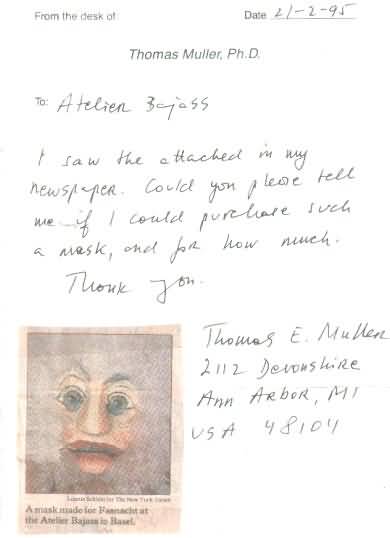 From the desk of:
Date 21-2-95
Thomas Muller, Ph.D.
To: Atelier Bajass
I saw the attached in my
newspaper. Could you please tell
me if I could purchase such
a mask, and for how much.
Thank you.
Thomas E. Muller
2112 Devonshire
Ann Arbor, MI
USA 48104
for The New York Times
A mask made for Fasnacht at
the Atelier Bajass in Basel.